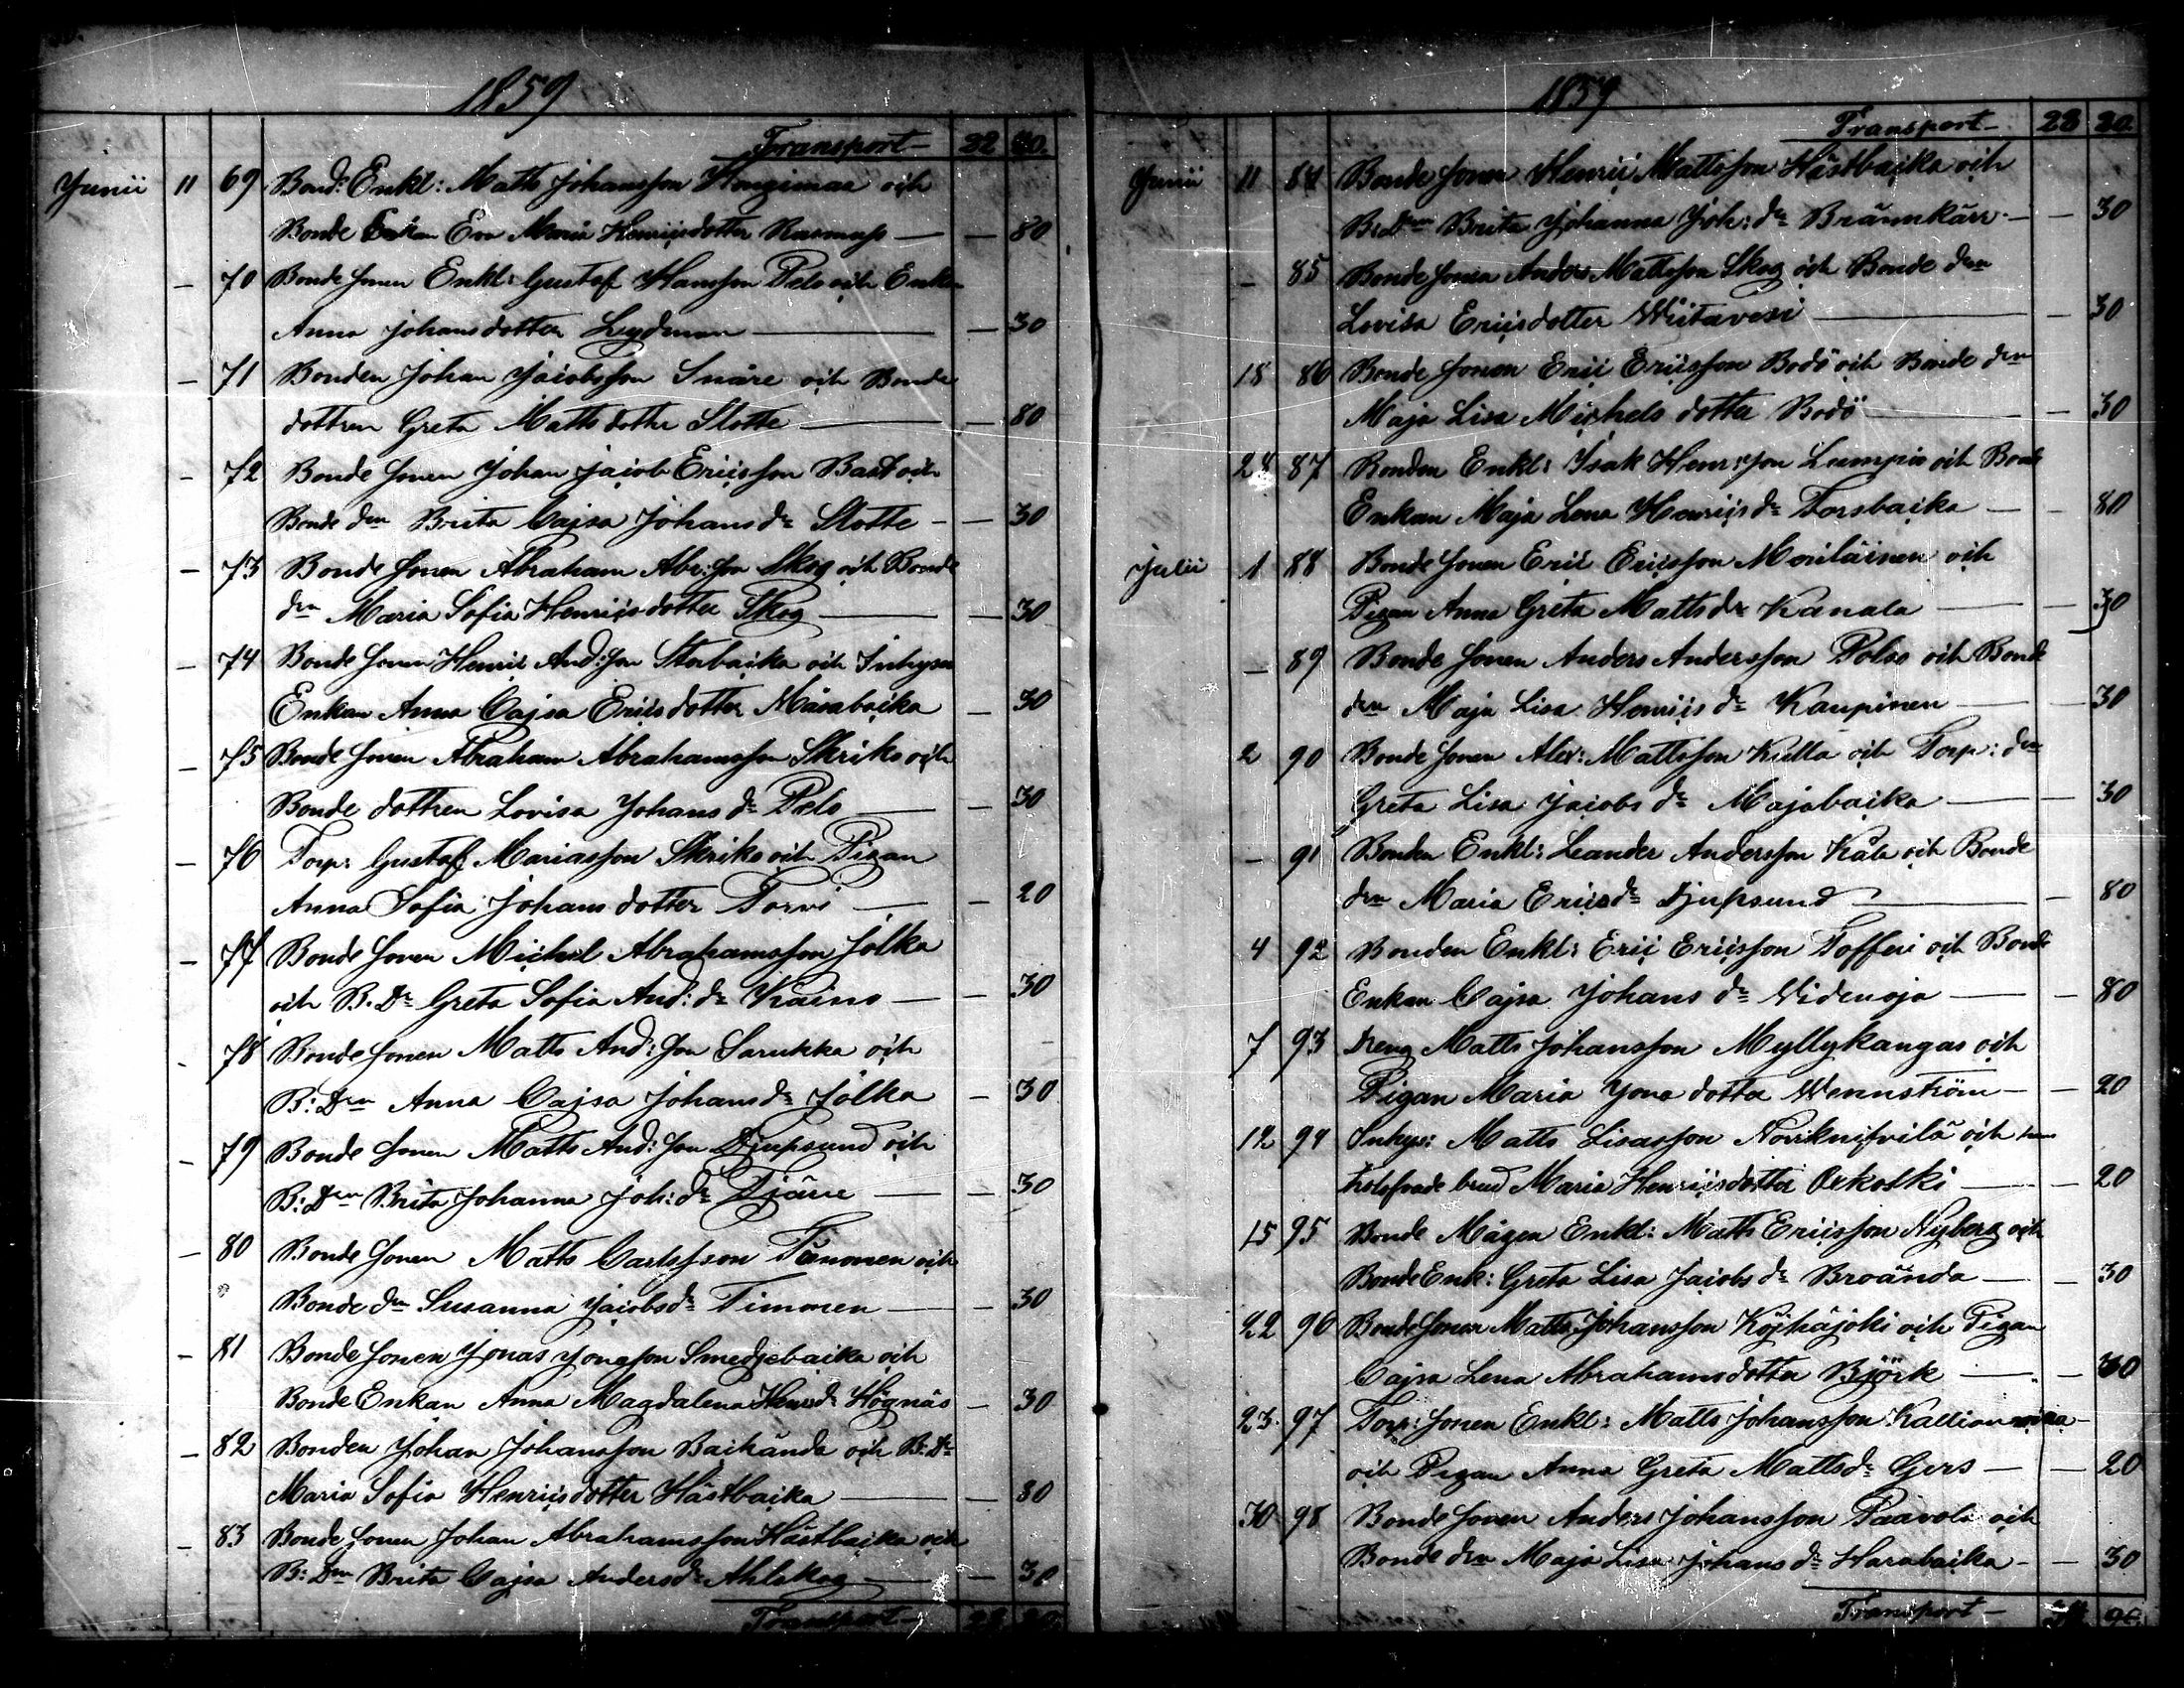 1859
Transport 22 80.
Junii 11 69 Bond: Enkl: Matts Johansson Hongimaa och
Bonde Enkan Eva Maria Henricsdotter Rasmus — — 80
— 70 Bonde sonen Enkl: Gustaf Hansson Pelo och Enkan
Anna Johansdotter Lydman — — 30
— 71 Bonden Johan Jacobsson Snåre och Bonde
dottren Greta Matts dotter Slotte — — 80
— 72 Bonde sonen Johan Jacob Ericsson Bast och
Bonde dtrn Brita Cajsa Johans dr Slotte — — 30
— 73 Bonde sonen Abraham Abr:son Skog och Bonde
dtrn Maria Sofia Henricsdotter Skog — — 30
— 74 Bonde sonen Henric And:son Storbacka och Inhyses
Enkan Anna Cajsa Erics dotter Måsabacka — 30
— 75 Bonde sonen Abraham Abrahamsson Skriko och
Bonde dottren Lovisa Johans dr Pelo — — 30
— 76 Torp: Gustaf Mariasson Skriko och Pigan
Anna Sofia Johans dotter Torvi — — 20
— 77 Bonde sonen Michel Abrahamsson Jolka
och B. Dr Greta Sofia And: dr Kaino — — 30
— 78 Bonde sonen Matts And: son Sarukka och
B: Dtrn Anna Cajsa Johans dr Jolka — 30
— 79 Bonde sonen Matts And: son Djupsund och
B: Dtrn Brita Johanna Joh: dr Tjäru — — 30
— 80 Bonde sonen Matts Carlsson Timonen och
Bonde dtrn Susanna Jacobs dr Timonen — — 30
— 81 Bonde sonen Jonas Jonasson Smedjebacka och
Bonde Enkan Anna Magdalena Henrs dr Högnäs — 30
— 82 Bonden Johan Johansson Backända och B: Dr
Maria Sofia Henricsdotter Hästbacka — — 80
— 83 Bonde sonen Johan Abrahamsson Hästbacka och
B: Dtrn Brita Cajsa Anders dr Ahlskog — — 30
Transport —
1859
Transport — 28 20.
Junii 11 84 Bonde sonen Henric Mattsson Hästbacka och
B: Dtrn Brita Johanna Joh: dr Brännkärr — — 30
— 85 Bonde sonen Anders Mattsson Skog och Bonde dtrn
Lovisa Ericsdotter Wiitavesi — — 30
18 86 Bonde sonen Eric Ericsson Bodö och Bonde dtrn
Maja Lisa Michels dotter Bodö — — 30
24 87 Bonden Enkl: Isak Henrsson Lumpio och Bonde
Enkan Maja Lena Henrics dr Forsbacka — — 80
Julii 1 88 Bonde sonen Eric Ericsson Moilainen och
Pigan Anna Greta Matts dr Kanala — — 30
— 89 Bonde sonen Anders Andersson Polso och Bonde
dtrn Maja Lisa Henrics dr Kaupinen — — 30
2 90 Bonde sonen Alex: Mattsson Kulla och Torp: dtrn
Greta Lisa Jacobs dr Majabacka — — 30
— 91 Bonden Enkl: Leander Andersson Kåla och Bonde
dtrn Maria Erics dr Djupsund — — 80
4 92 Bonden Enkl: Eric Ericsson Tofferi och Bonde
Enkan Cajsa Johans dr Widenoja — — 80
7 93 Dreng Matts Johansson Myllykangas och
Pigan Maria Jonæ dotter Wennström — — 20
12 94 Inhys: Matts Lisasson Norrknifvilä och
trolofvade brud Maria Henricsdotter Orkotki — — 20
15 95 Bonde Mågen Enkl: Matts Ericsson Nyberg och
Bonde Enk: Greta Lisa Jacobs dr Broända — — 30
22 96 Bonde sonen Matts Johansson Köyhäjoki och Pigan
Cajsa Lena Abrahamsdotter Björk — — 30
23. 97 Torp: sonen Enkl: Matts Johansson
och Pigan Anna Greta Matts dr Gers — — 20
30 98 Bonde sonen Anders Johansson Paavola och
Bonde dtrn Maja Lisa Johans dr Harabacka — — 30
Transport —